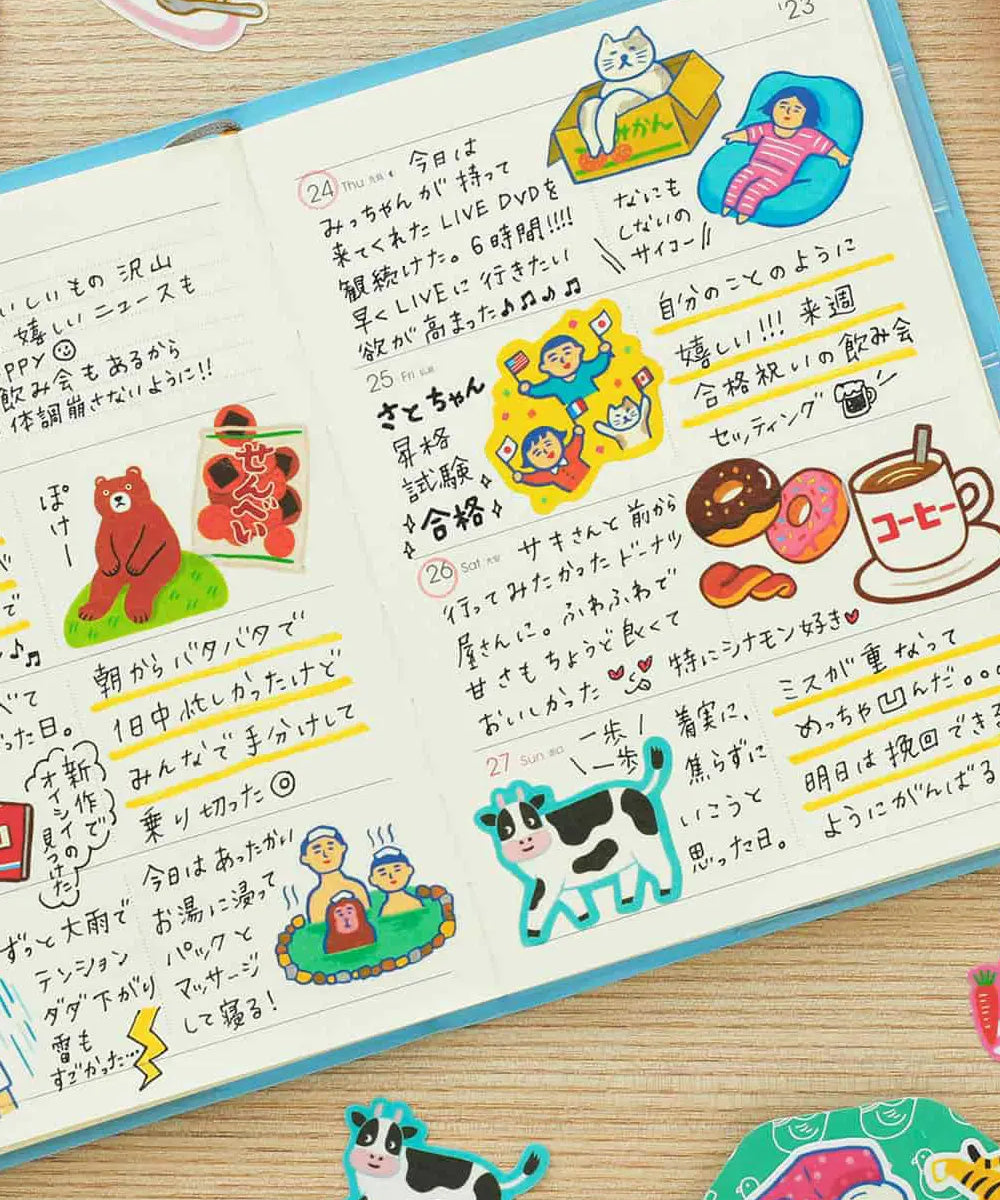 いしいもの 沢山
嬉しい ニュースも
PPY
飲み会もあるから
体調崩さないように!!
ぽけー
せんべい
朝から バタバタで
1日中 忙しかったけど
みんなで 手分けして
乗り切った◎
べて
った日。
新作で
オイシイの
見つけた
ずっと 大雨で
テンション
ダダ下がり
雷も
すごかった…
今日は あったかい
お湯に浸って
パックと
マッサージ
して寝る!
'23
24 Thu
今日は
みっちゃんが 持って
来てくれた LIVE DVDを
観続けた。6時間!!!!
早くLIVEに 行きたい
欲が 高まった♪♫♪♫
みかん
なにも
しないの
サイコー
25 Fri
さとちゃん
昇格
試験
合格
自分のことのように
嬉しい!!! 来週
合格祝いの飲み会
セッティング
26 Sat
サキさんと 前から
行ってみたかったドーナツ
屋さんに。ふわふわで
甘さも ちょうど良くて
おいしかった
特にシナモン好き
コーヒー
27 Sun
一歩
一歩
着実に、
焦らずに
いこうと
思った日。
ミスが 重なって
めっちゃ凹んだ。。。
明日は 挽回できる
ようにがんばる